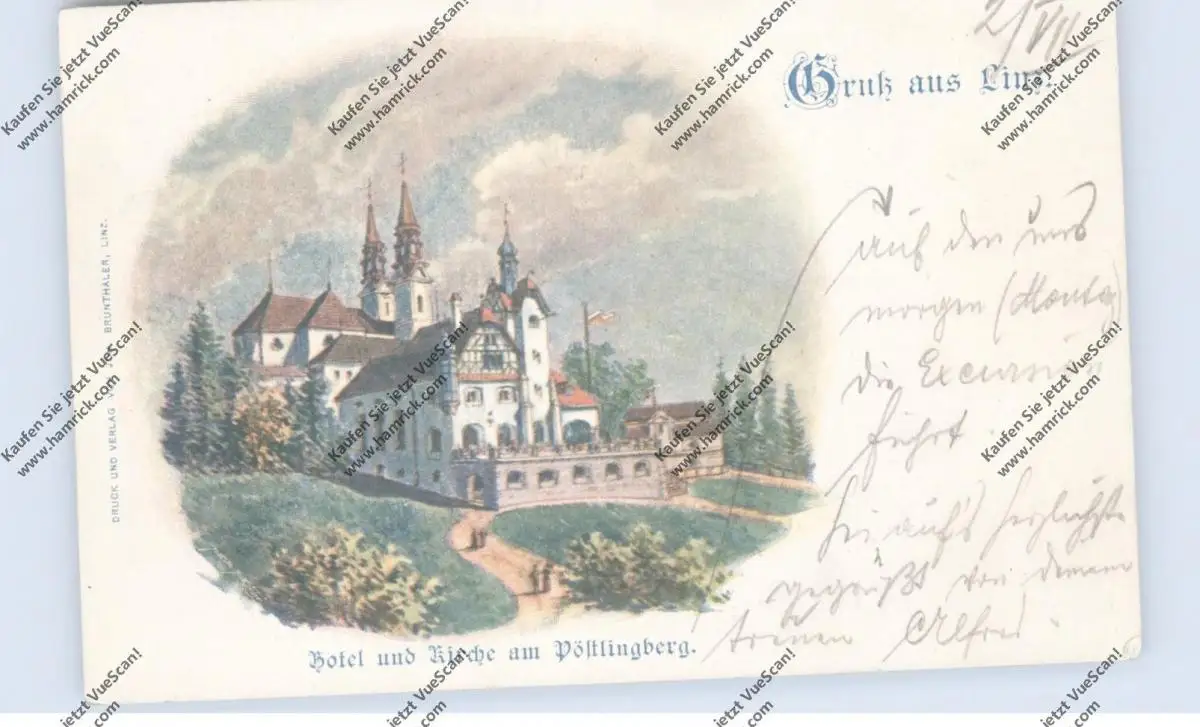 2/VII
Gruß aus Linz.
auf den uns
morgen (Montag)
die Excursion
führt.
Sei auf's herzlichste
gegrüßt von deinem
treuen Alfred.
Hotel und Kirche am Pöstlingberg.
DRUCK UND VERLAG BRUNTHALER, LINZ.
Kaufen Sie jetzt VueScan!
www.hamrick.com
Kaufen Sie jetzt VueScan!
www.hamrick.com
Kaufen Sie jetzt VueScan!
www.hamrick.com
Kaufen Sie jetzt VueScan!
www.hamrick.com
Kaufen Sie jetzt VueScan!
www.hamrick.com
Kaufen Sie jetzt VueScan!
www.hamrick.com
Kaufen Sie jetzt VueScan!
www.hamrick.com
Kaufen Sie jetzt VueScan!
www.hamrick.com
Kaufen Sie jetzt VueScan!
www.hamrick.com
Kaufen Sie jetzt VueScan!
www.hamrick.com
Kaufen Sie jetzt VueScan!
www.hamrick.com
Kaufen Sie jetzt VueScan!
www.hamrick.com